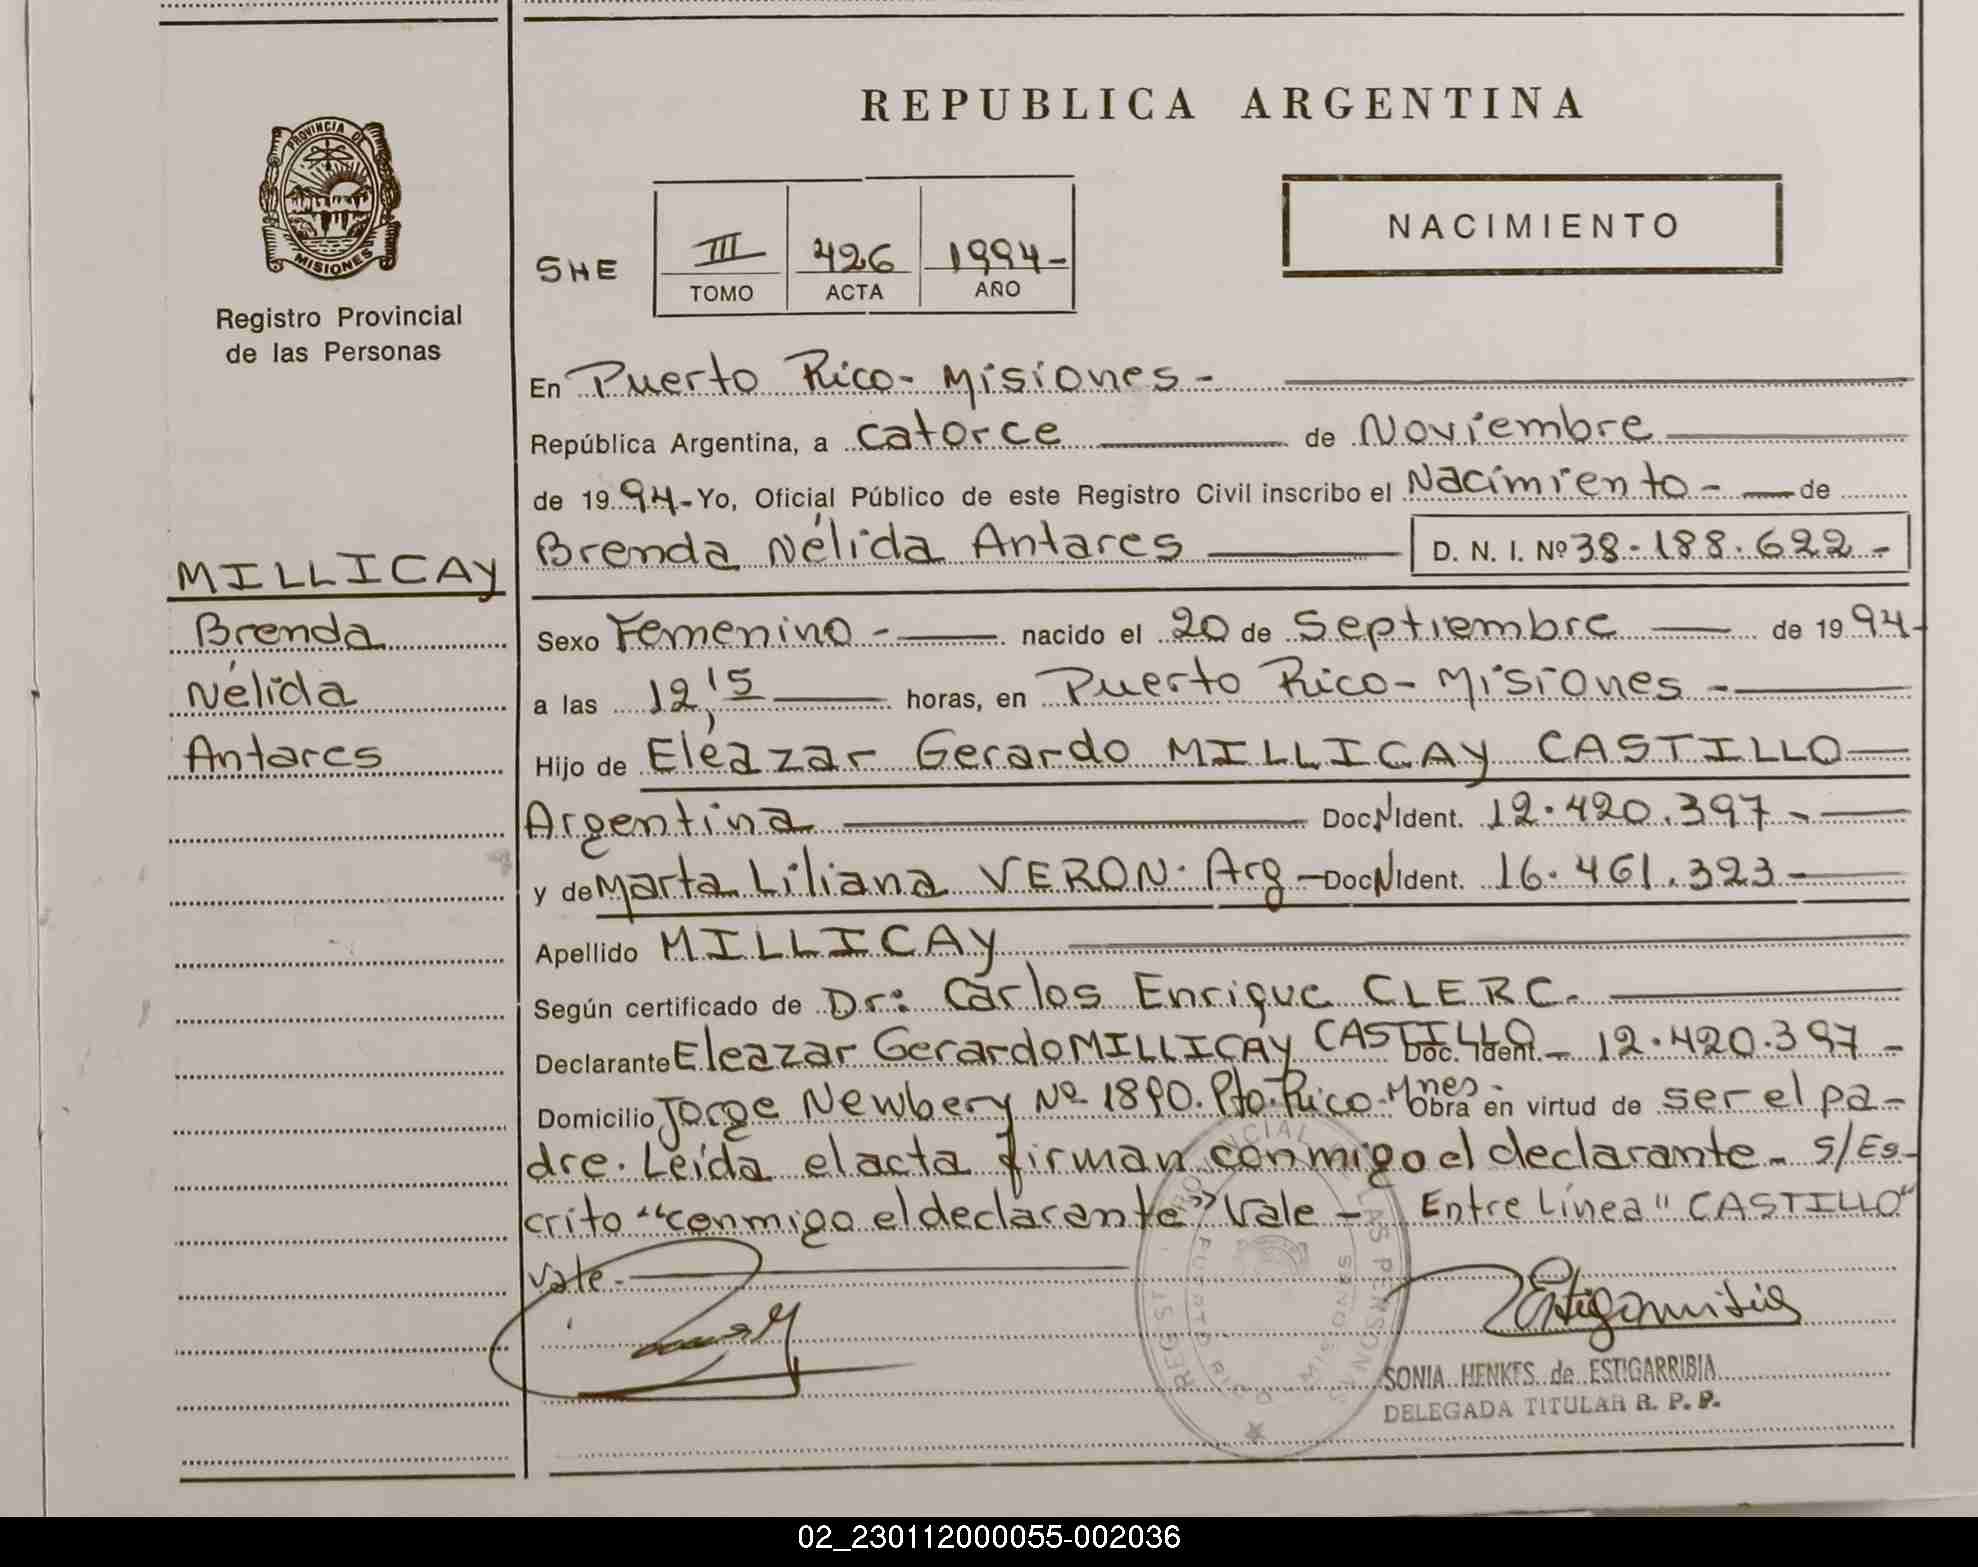 REPUBLICA ARGENTINA
PROVINCIA DE
MISIONES
Registro Provincial
de las Personas
NACIMIENTO
SHE III 426 1994-
TOMO ACTA AÑO
En Puerto Rico - Misiones -
República Argentina, a catorce de Noviembre
de 1994- Yo, Oficial Público de este Registro Civil inscribo el Nacimiento - de
Brenda Nélida Antares D. N. I. Nº 38-188.622-
MILLICAY
Brenda
Nélida
Antares
Sexo Femenino - nacido el 20 de Septiembre de 1994-
a las 12,15 horas, en Puerto Rico - Misiones -
Hijo de Eleázar Gerardo MILLICAY CASTILLO
Argentina Doc.N Ident. 12.420.397-
y de Marta Liliana VERON. Arg - Doc N Ident. 16.461.323-
Apellido MILLICAY
Según certificado de Dr: Carlos Enrique CLERC.
Declarante Eleazar Gerardo MILLICAY CASTILLO Doc. Ident. - 12.420.397-
Domicilio Jorge Newbery Nº 1890. Pto. Rico - Mnes - Obra en virtud de ser el pa-
dre. Leída el acta firman conmigo el declarante - S/Es-
crito "conmigo el declarante" Vale - Entre Línea "CASTILLO"
Vale.-
REGIST. PROVINCIAL DE LAS PERSONAS
PUERTO RICO MISIONES
SONIA HENKES de ESTIGARRIBIA
DELEGADA TITULAR R. P. P.
02_230112000055-002036